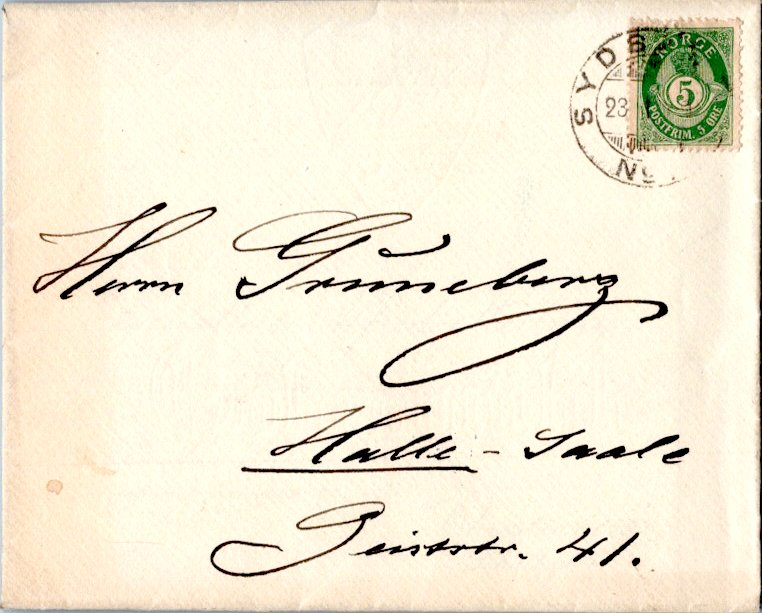 NORGE
5
POSTFRIM. 5 ØRE
SYDS
23
Herrn Gruneberg
Halle - Saale
Geiststr. 41.